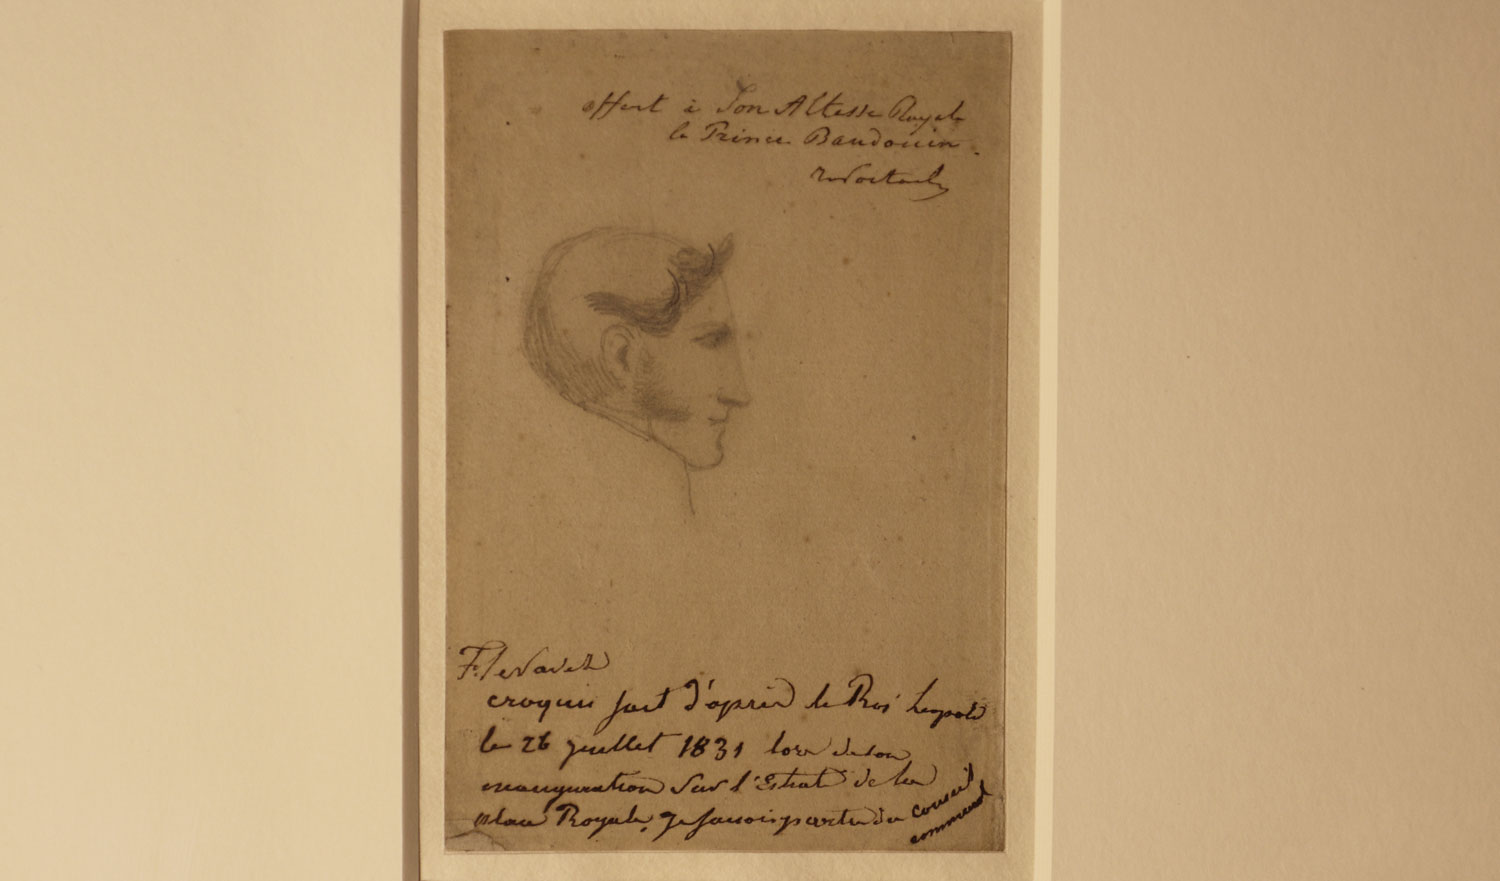 offert à Son Altesse Royale
le Prince Baudouin.
croquis fait d'après le Roi Leopold
le 26 juillet 1831 lors de son
inauguration sur l'Estrat de la
place Royale, je faisois partie du conseil
communal